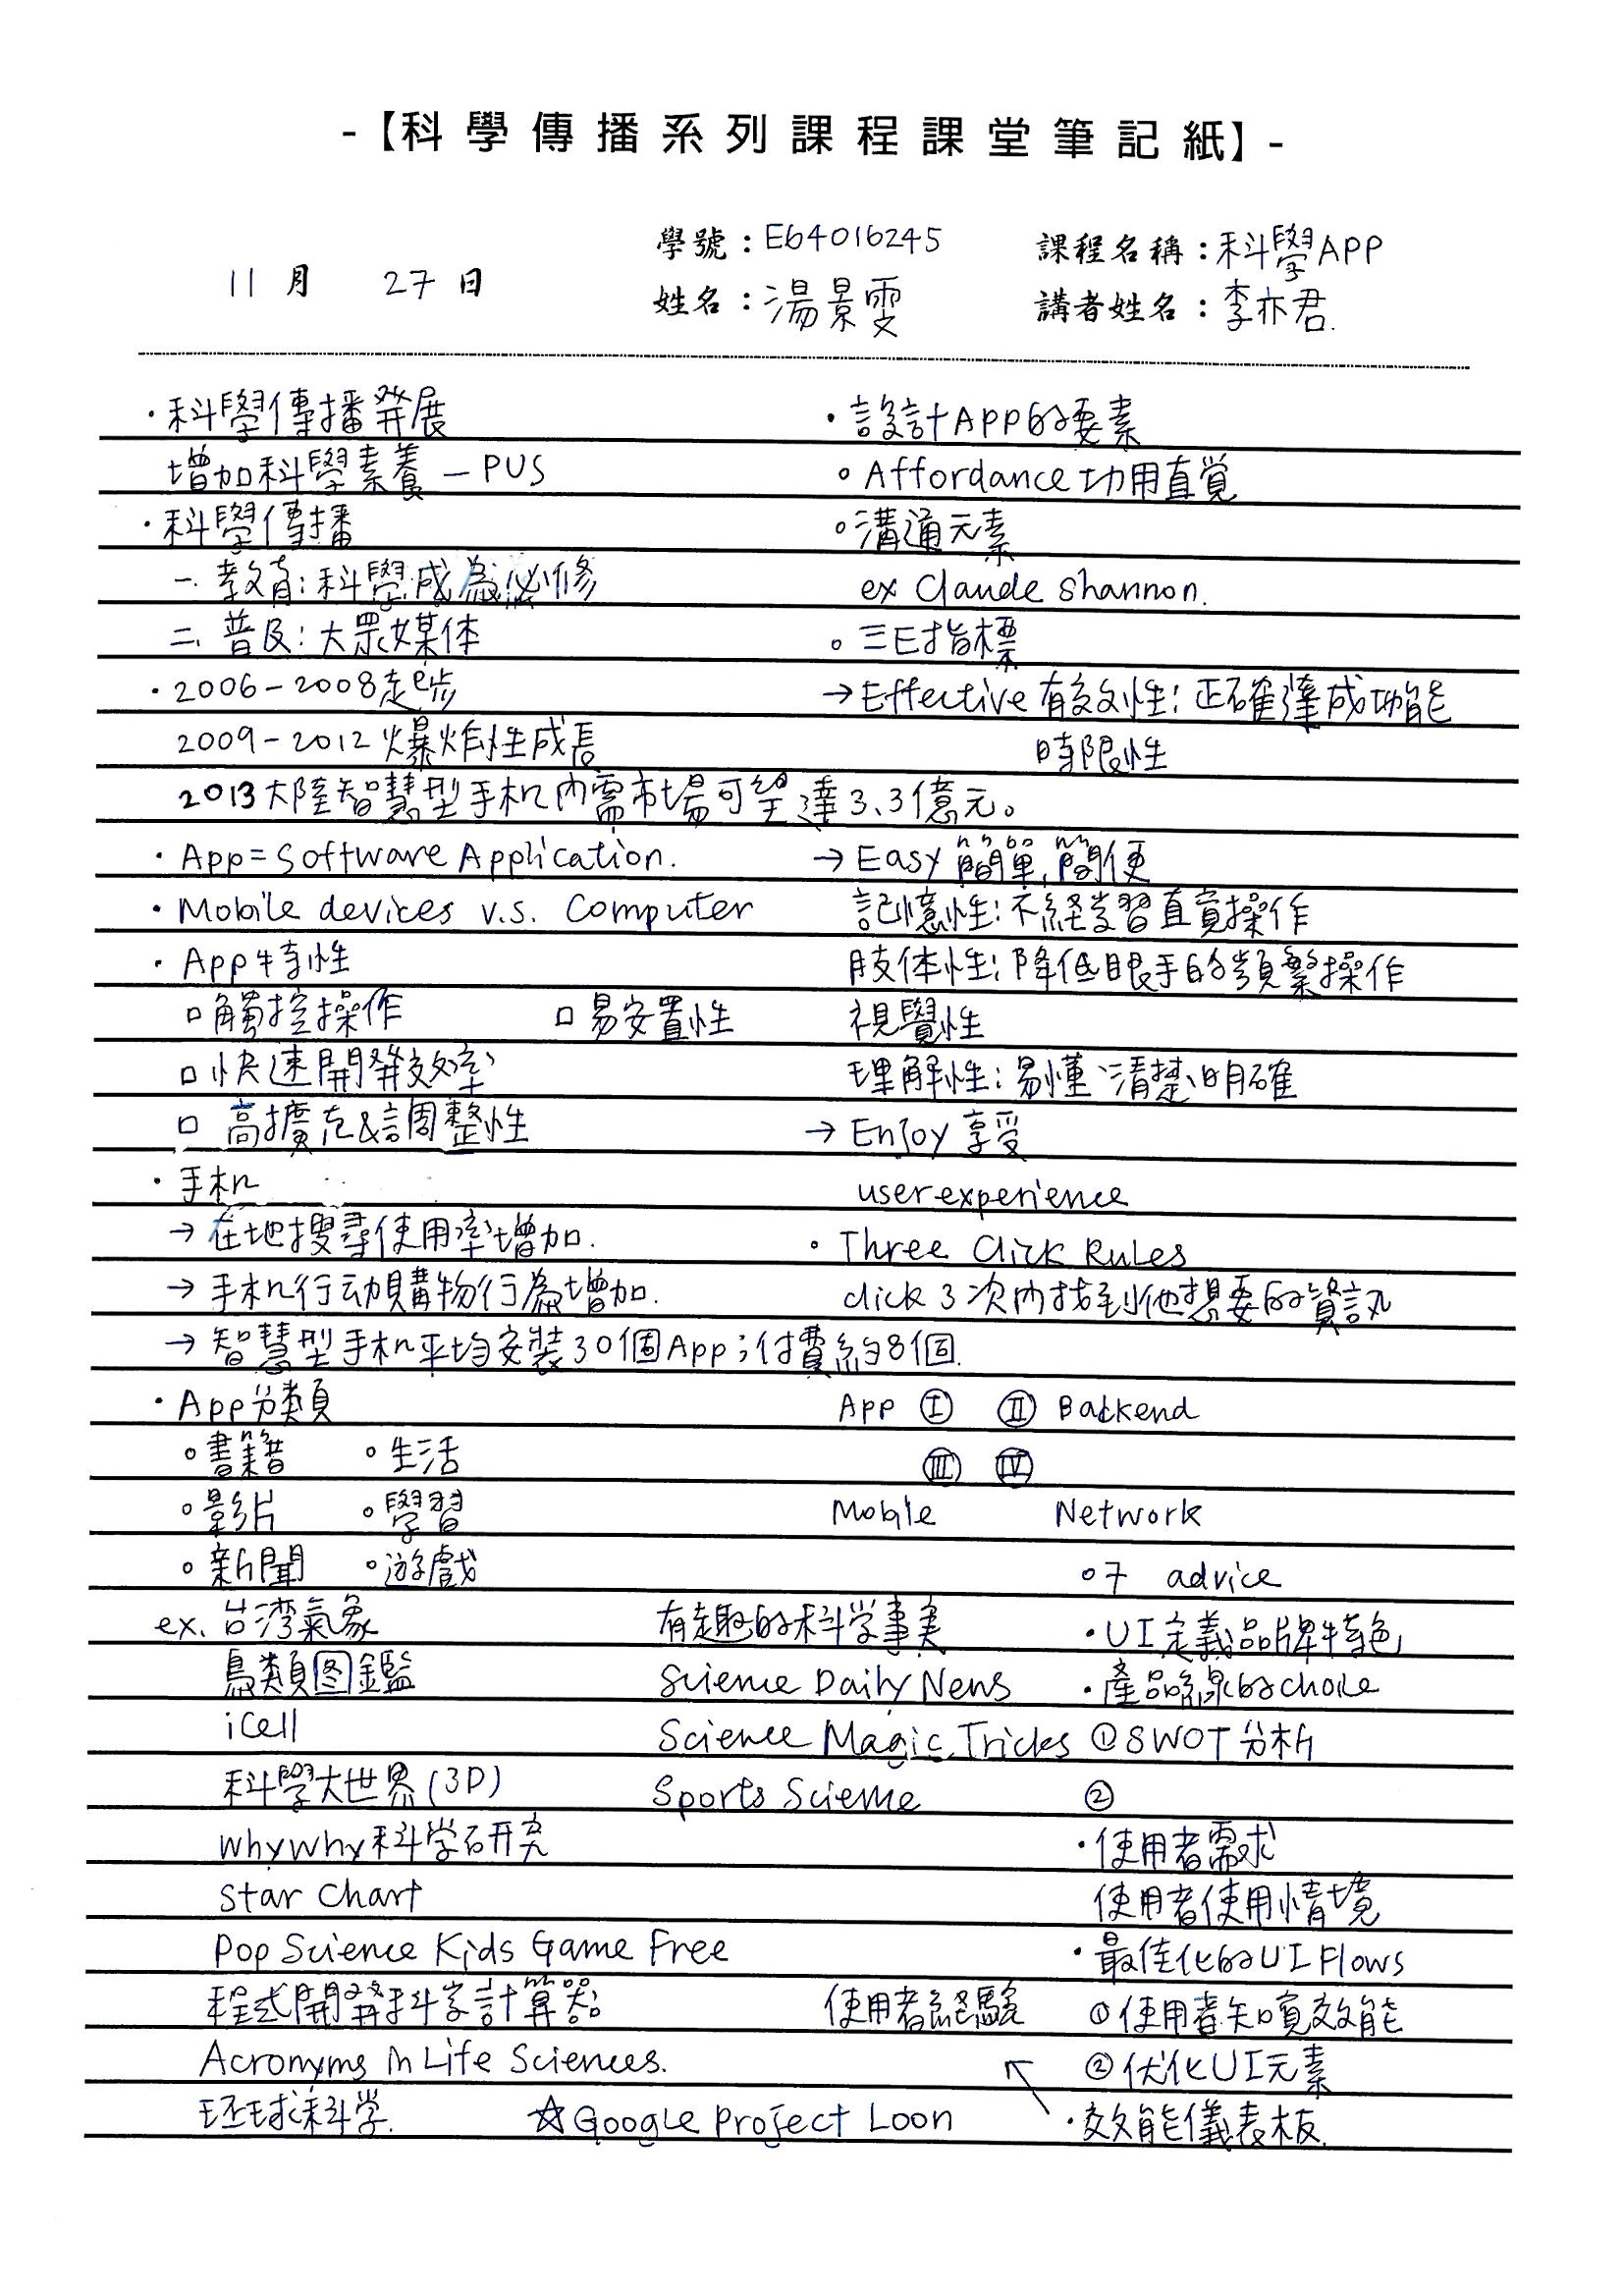 -【科學傳播系列課程課堂筆記紙】-
學號：E64016245
課程名稱：科學APP
11月 27日
姓名：湯景雯
講者姓名：李亦君.
·科學傳播発展
增加科學素養－PUS
·科學傳播
一.教育:科學成為必修
二.普及:大眾媒体
·2006-2008起步
2009-2012爆炸性成長
2013大陸智慧型手机內需市場可望達3.3億元。
·App=Software Application.
·Mobile devices v.s. Computer
·App特性
□觸控操作 □易安置性
□快速開發效率
□高擴充&調整性
·手机
→在地搜尋使用率增加.
→手机行动購物行為增加.
→智慧型手机平均安裝30個App;付費約8個.
·App分類
◦書籍 ◦生活
◦影片 ◦學習
◦新聞 ◦遊戲
ex.台湾氣象
鳥類图鑑
iCell
科學大世界(3D)
whywhy科学研究
Star Chart
Pop Science Kids Game Free
程式開發科学計算器
Acronyms in Life Sciences.
环球科学.
有趣的科学事実
Science Daily News
Science Magic Tricks
Sports Science
☆Google Project Loon
·設計APP的要素
◦Affordance功用直覚
◦溝通元素
ex Claude Shannon.
◦三E指標
→Effective有效性:正確達成功能
時限性
→Easy簡單,簡便
記憶性:不経学習直覚操作
肢体性:降低眼手的頻繁操作
視覺性
理解性:易懂、清楚、明確
→Enjoy享受
user experience
·Three Click Rules
click 3次內找到他想要的資訊
App Ⓘ Ⅱ Backend
Ⅲ Ⅳ
Mobile Network
◦7 advice
·UI定義品牌特色
·產品線的choice
①SWOT分析
②
·使用者需求
使用者使用情境
·最佳化的UI Flows
①使用者知覚效能
②优化UI元素
·效能儀表板.
使用者經驗